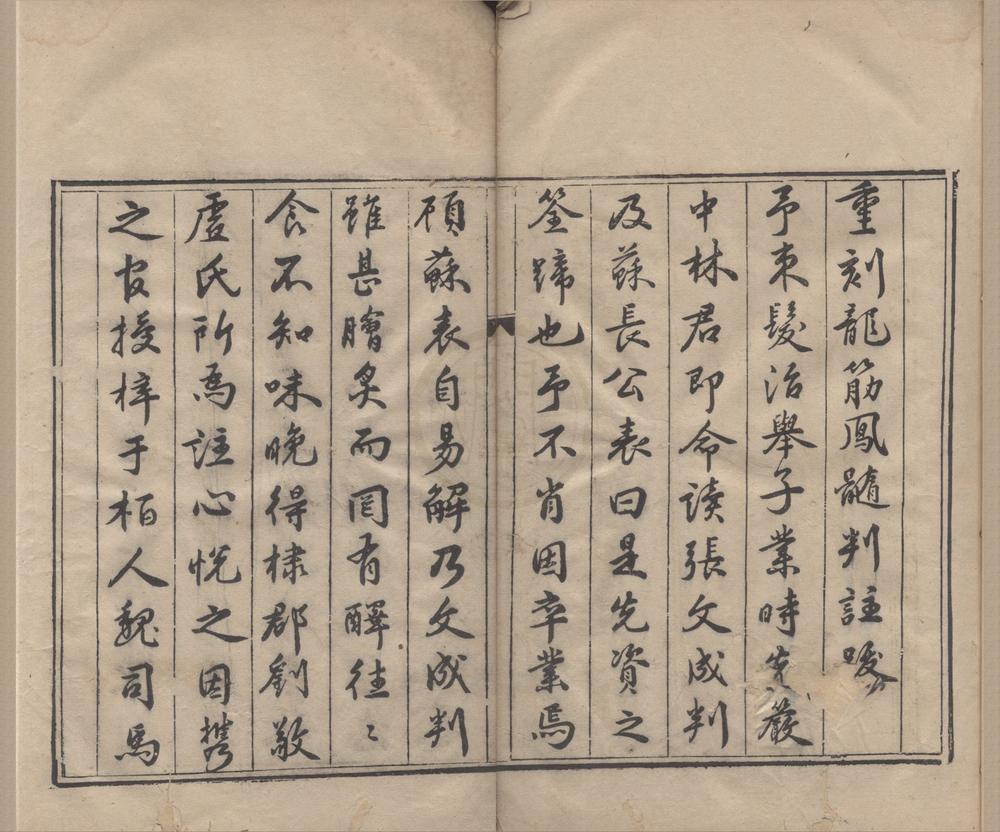 重刻龍筋鳳髓判註跋
予束髮治舉子業時先嚴
中林君即命讀張文成判
及蘇長公表曰是先資之
筌蹄也予不肖因卒業焉
顧蘇表自易解乃文成判
雖甚膾炙而罔有醳往〻
食不知味晚得棣郡劉敬
虛氏所為註心悅之因携
之官授梓于栢人魏司馬